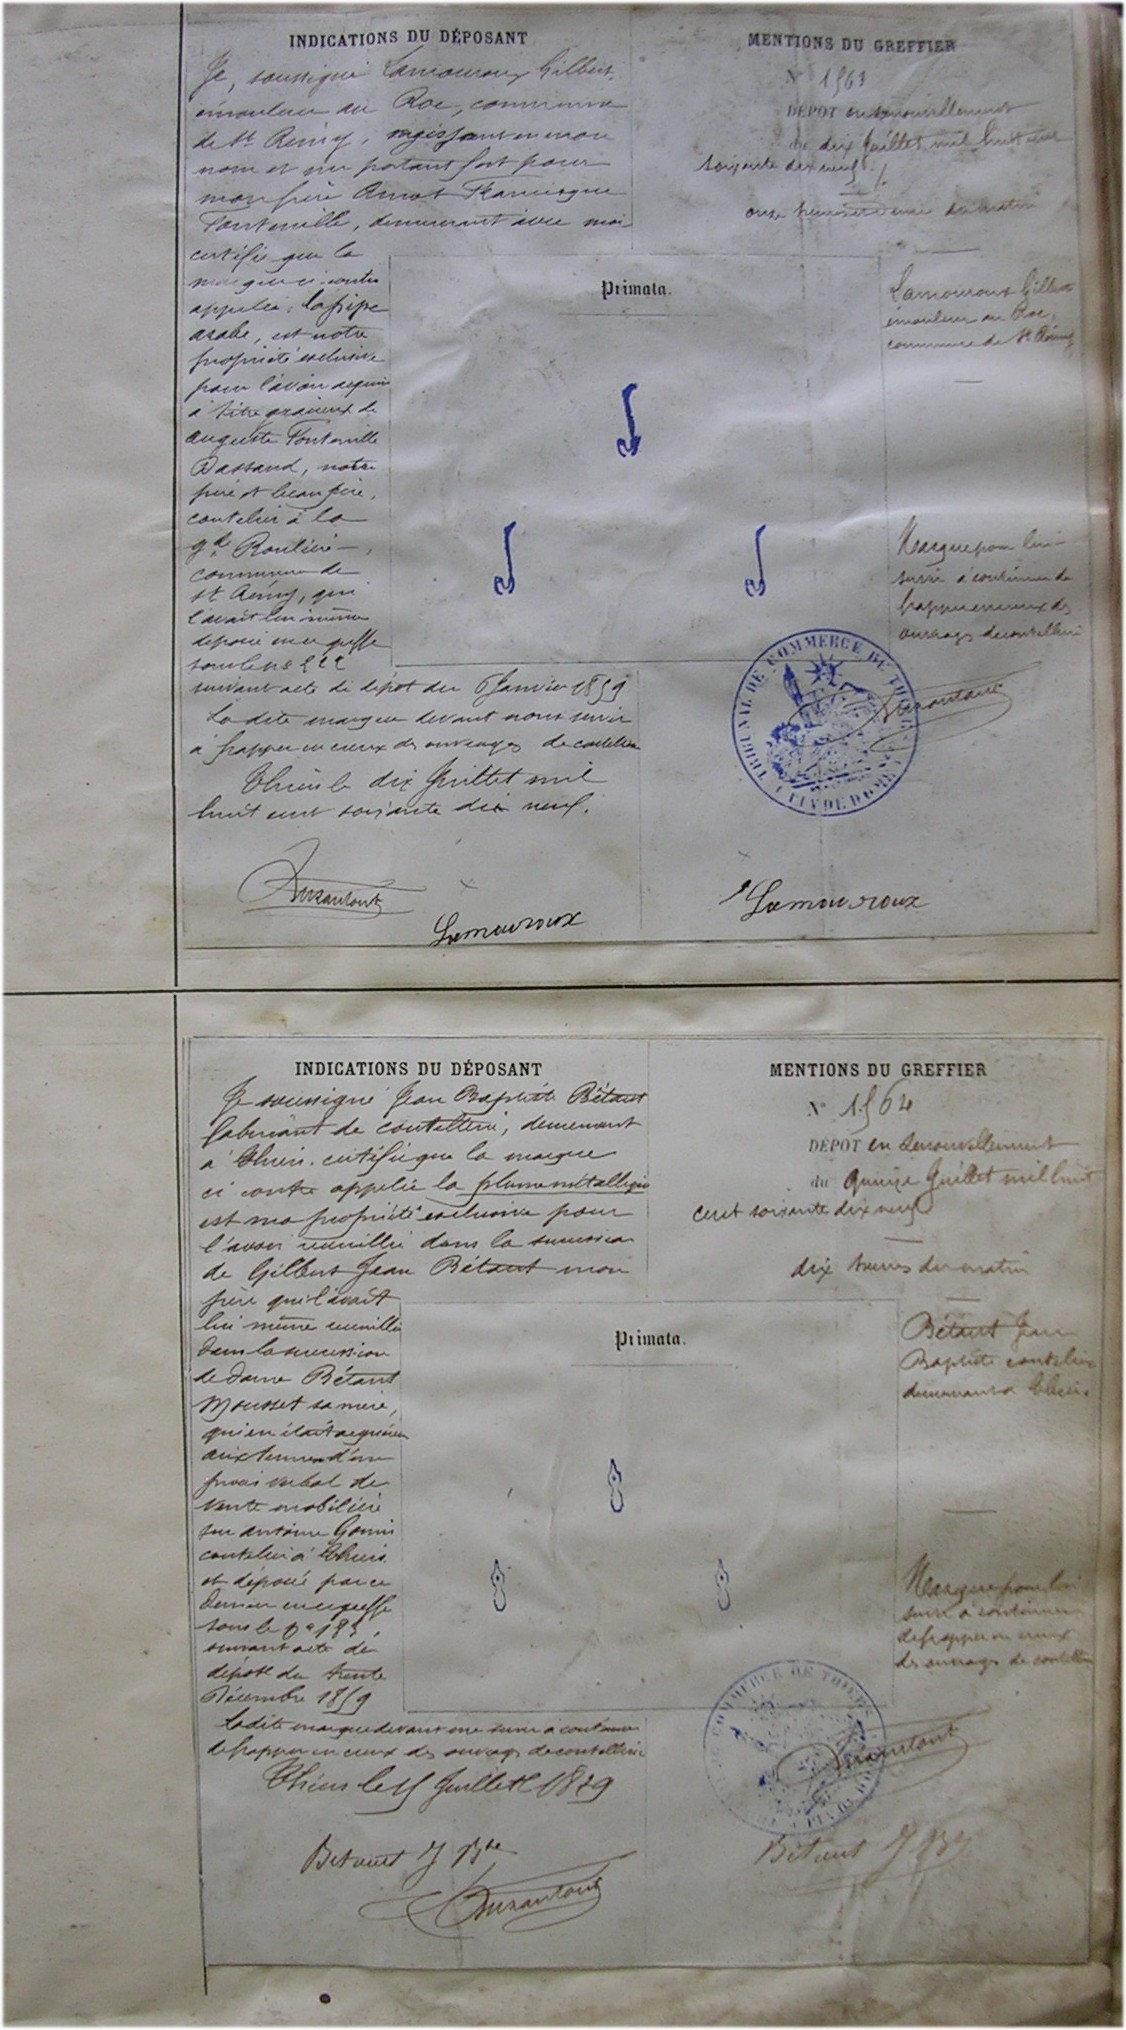 INDICATIONS DU DÉPOSANT
Je, soussigné Lamouroux Gilbert,
émouleur au Roc, commune
de St Rémy, agissant en mon
nom et me portant fort pour
mon frère
Fontenille, demeurant avec moi
certifie que la
marque ci-contre
appelée: la pipe
arabe, est notre
propriété exclusive
pour l'avoir acquise
à titre gracieux de
Auguste Fontenille
Dassaud, notre
père et beau père,
coutelier à la
commune de
St Rémy, qui
l'avait lui même
déposée en ce greffe
sous le no
suivant acte de dépôt du 6 Janvier 1859
La dite marque devant nous servir
à frapper en creux des ouvrages de coutellerie
Thiers le dix Juillet mil
huit cent soixante dix neuf.
Lamouroux
MENTIONS DU GREFFIER
N° 1563
DÉPOT en renouvellement
du dix Juillet mil huit cent
soixante dix neuf
onze heures du matin
Primata.
Lamouroux Gilbert
émouleur au Roc,
commune de St Rémy
Marque pour lui
servir à continuer de
frapper en creux des
ouvrages de coutellerie
TRIBUNAL DE COMMERCE DE THIERS
PUY DE DOME
Lamouroux
INDICATIONS DU DÉPOSANT
Je soussigné Jean Baptiste Bétant
fabricant de coutellerie, demeurant
à Thiers. certifie que la marque
ci contre appelée la plume métallique
est ma propriété exclusive pour
l'avoir recueillie dans la succession
de Gilbert Jean Bétant mon
père qui l'avait
lui même recueillie
dans la succession
de dame Bétant
Mousset sa mère,
qui en était acquéreur
aux termes d'un
procès verbal de
vente mobilière
sur Antoine Gonin
coutelier à Thiers
et déposée par ce
dernier en ce greffe
sous le no
suivant acte de
dépôt du trente
Décembre 1859
Ladite marque devant me servir à continuer
de frapper en creux des ouvrages de coutellerie
Thiers le 15 Juillet 1879
Bétant J Bte
MENTIONS DU GREFFIER
N° 1564
DÉPOT en renouvellement
du Quinze Juillet mil huit
cent soixante dix neuf
dix heures du matin
Primata.
Bétant Jean
Baptiste coutelier
demeurant à Thiers.
Marque pour lui
servir à continuer
de frapper en creux
des ouvrages de coutellerie
COMMERCE DE THIERS
PUY DE DOME
Bétant J Bte